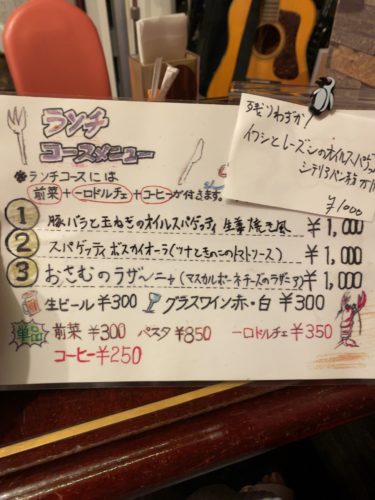 ランチ
コースメニュー
ランチコースには
前菜+一口ドルチェ+コーヒーが付きます。
残りわずか!
イワシとレーズンのオイルスパゲッティ
¥1000
1 豚バラと玉ねぎのオイルスパゲッティ 生姜焼き風 ¥1,000
2 スパゲッティ ボスカイオーラ(ツナときのこのトマトソース) ¥1,000
3 おさむのラザーニァ(マスカルポーネチーズのラザニア) ¥1,000
生ビール¥300 グラスワイン赤・白 ¥300
単品 前菜 ¥300 パスタ ¥850 一口ドルチェ ¥350
コーヒー¥250